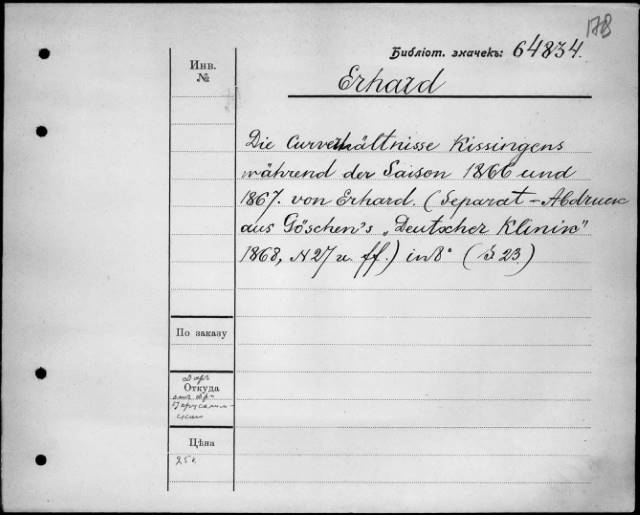 178
Библіот. значекъ: 64834.
Инв.
№
Erhard
Die Curverhältnisse Kissingens
während der Saison 1866 und
1867. von Erhard. (Separat-Abdruck
aus Göschen's „Deutscher Klinik"
1868, N 27 u. ff.) in 8° (S 23)
По заказу
Даръ
Откуда
Цѣна
25 к